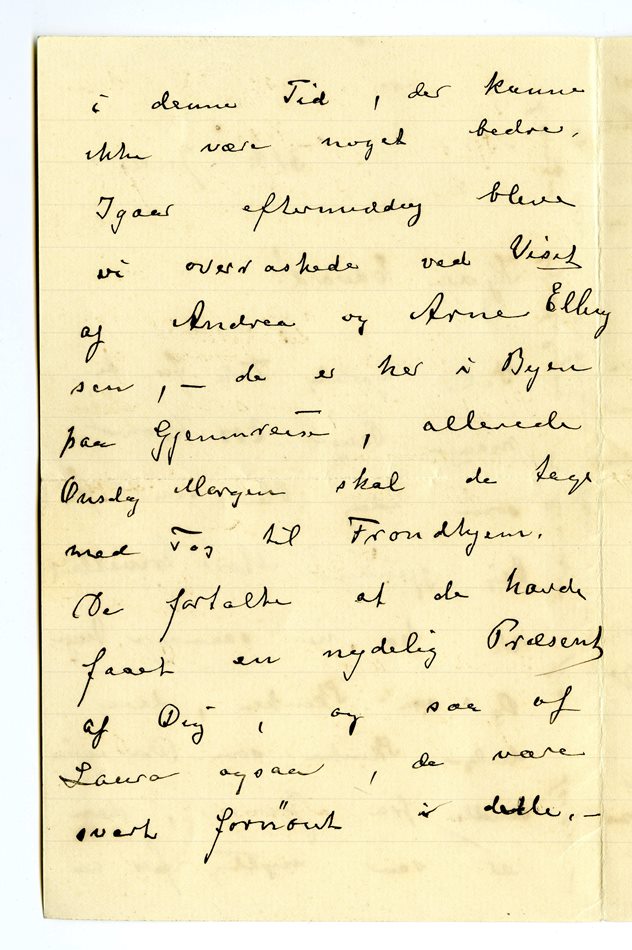 i denne Tid, der kunne
ikke være noget bedre.
Igaar eftermiddag bleve
vi overraskede ved Visit
af Andrea og Arne Elling
sen, – de er her i Byen
paa Gjennreise, allerede
Onsdag Morgen skal de tage
med Tog til Trondhjem.
De fortalte at de havde
faaet en nydelig Præsent
af Dig, og saa af
Laura ogsaa, de være
svært fornöiet